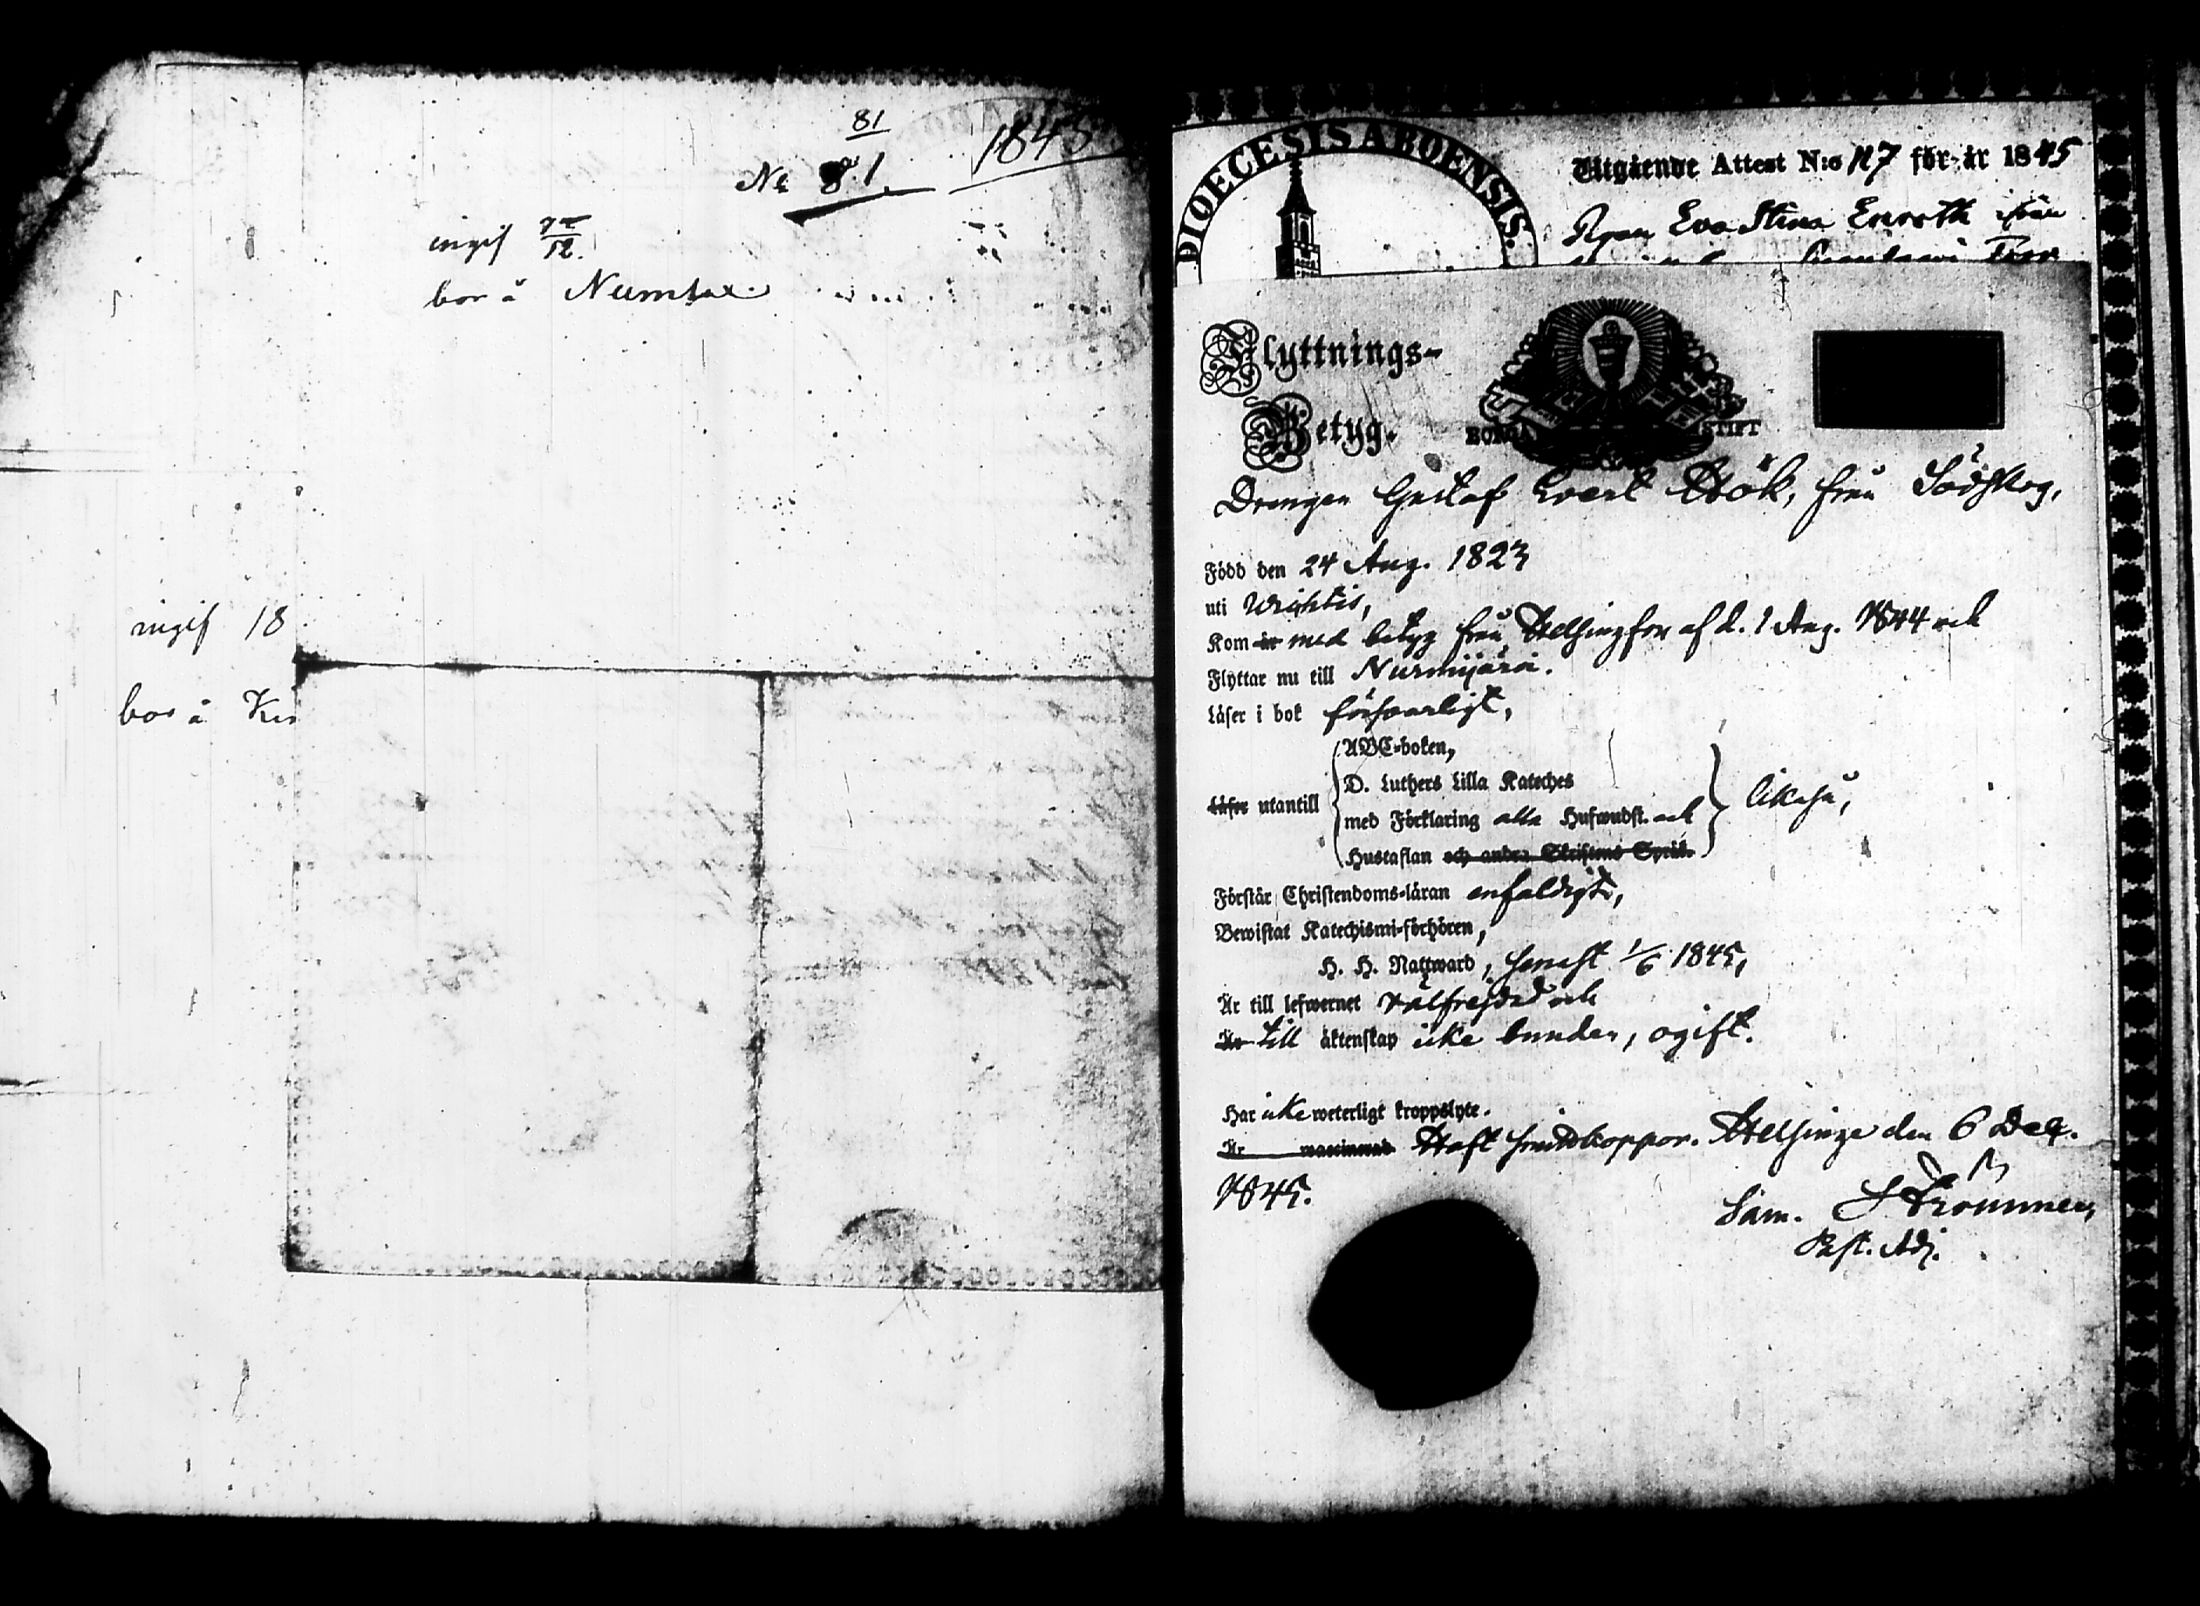 81
No 81.
1845
ingif 7/12.
bor å Numlax
ingif 18
bor å
DIOECESIS ABOENSIS.
Utgående Attest N:o 117 för år 1845
Pigan Eva Stina Enroth ifrån
Flyttnings-
Betyg.
BORGÅ STIFT
Drengen Gustaf Evert Hök, från Södskog,
Född den 24 Aug. 1823
uti Wichtis,
Kom är med betyg från Helsingfors af d. 1 Aug. 1844 och
Flyttar nu till Nurmijärvi.
Läser i bok försvarligt,
ABC-boken,
D. Luthers Lilla Kateches
Läser utantill
med Förklaring alla Hufwudst. och
likaså,
Hustaflan och andra Skriftens Språk.
Förstår Christendoms-läran enfaldigt,
Bewistat Katechismi-förhören,
H. H. Nattward, senast 1/6 1845,
Är till lefwernet välfrejdad och
Är till äktenskap icke bunden, ogift.
Har icke weterligt kroppslyte.
Är waccinerad Haft smittkoppor. Helsinge den 6 Dec.
1845.
Sam. Strömmer
Past. Adj.